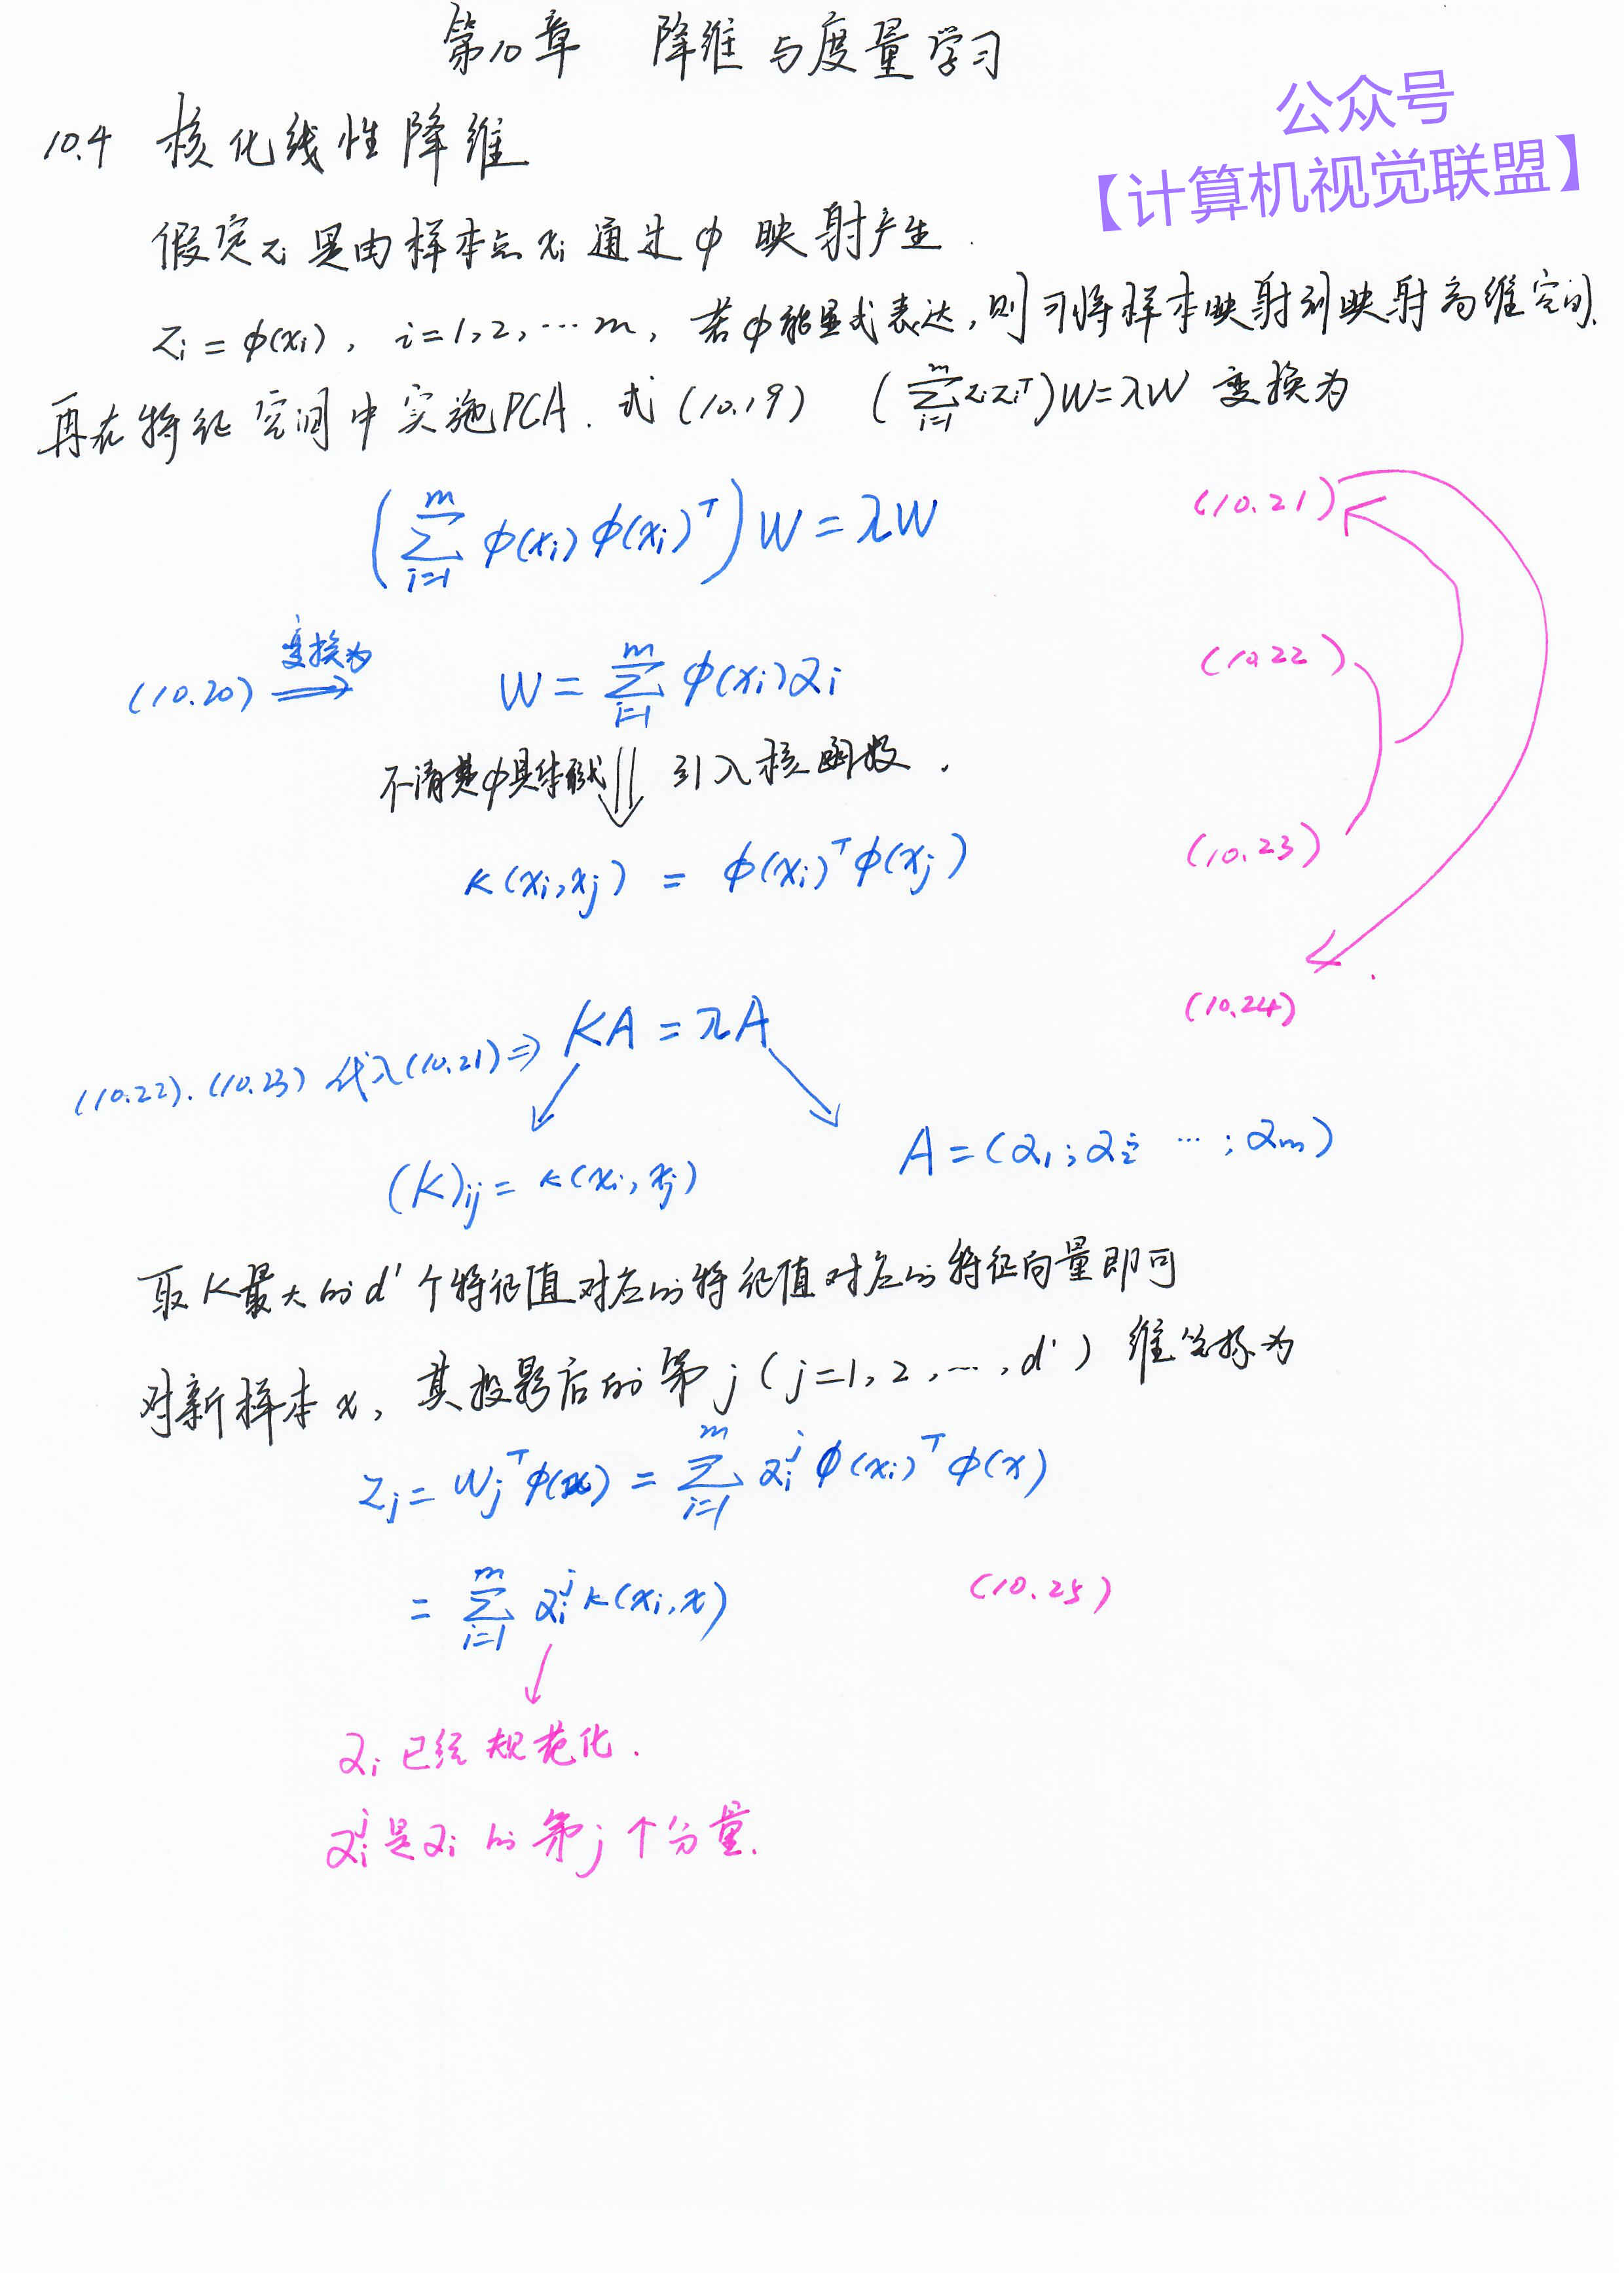 第10章 降维与度量学习
公众号
【计算机视觉联盟】
10.4 核化线性降维
假定zᵢ是由样本点xᵢ通过φ映射产生.
zᵢ = φ(xᵢ), i=1,2,…m, 若φ能显式表达,则可将样本映射到映射高维空间.
再在特征空间中实施PCA. 式(10.19) (∑ᵢ₌₁ᵐ zᵢzᵢᵀ)W=λW 变换为
(∑ᵢ₌₁ᵐ φ(xᵢ)φ(xᵢ)ᵀ)W = λW (10.21)
(10.20) 变换为 ⟹ W = ∑ᵢ₌₁ᵐ φ(xᵢ)αᵢ (10.22)
不清楚φ具体形式 ⇓ 引入核函数.
κ(xᵢ,xⱼ) = φ(xᵢ)ᵀφ(xⱼ) (10.23)
(10.24)
(10.22).(10.23) 代入(10.21) ⇒ KA = λA
(K)ᵢⱼ = κ(xᵢ,xⱼ) A=(α₁;α₂; …;αₘ)
取K最大的d'个特征值对应的特征值对应的特征向量即可
对新样本x, 其投影后的第j(j=1,2,…,d')维坐标为
zⱼ = wⱼᵀφ(x) = ∑ᵢ₌₁ᵐ αᵢʲ φ(xᵢ)ᵀφ(x)
= ∑ᵢ₌₁ᵐ αᵢʲ κ(xᵢ,x) (10.25)
αᵢ已经规范化.
αᵢʲ是αᵢ的第j个分量.